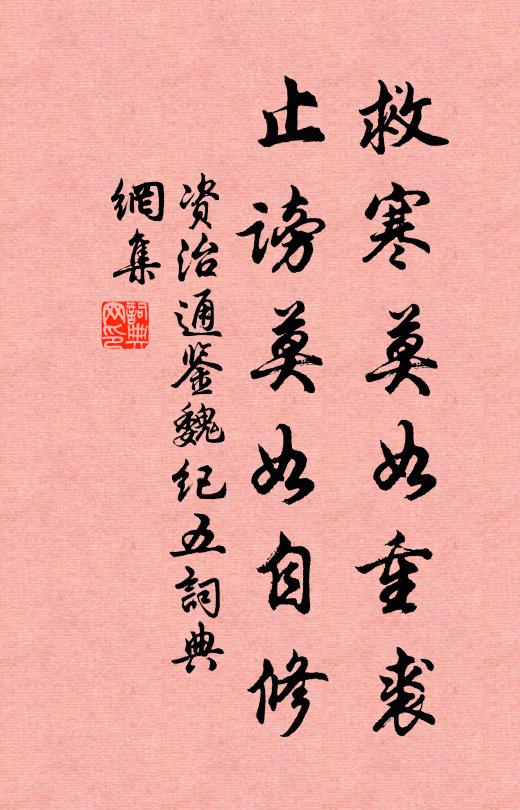 救寒莫如重裘
止謗莫如自修
资治通鉴魏纪五詞典
網集
詞典
网印